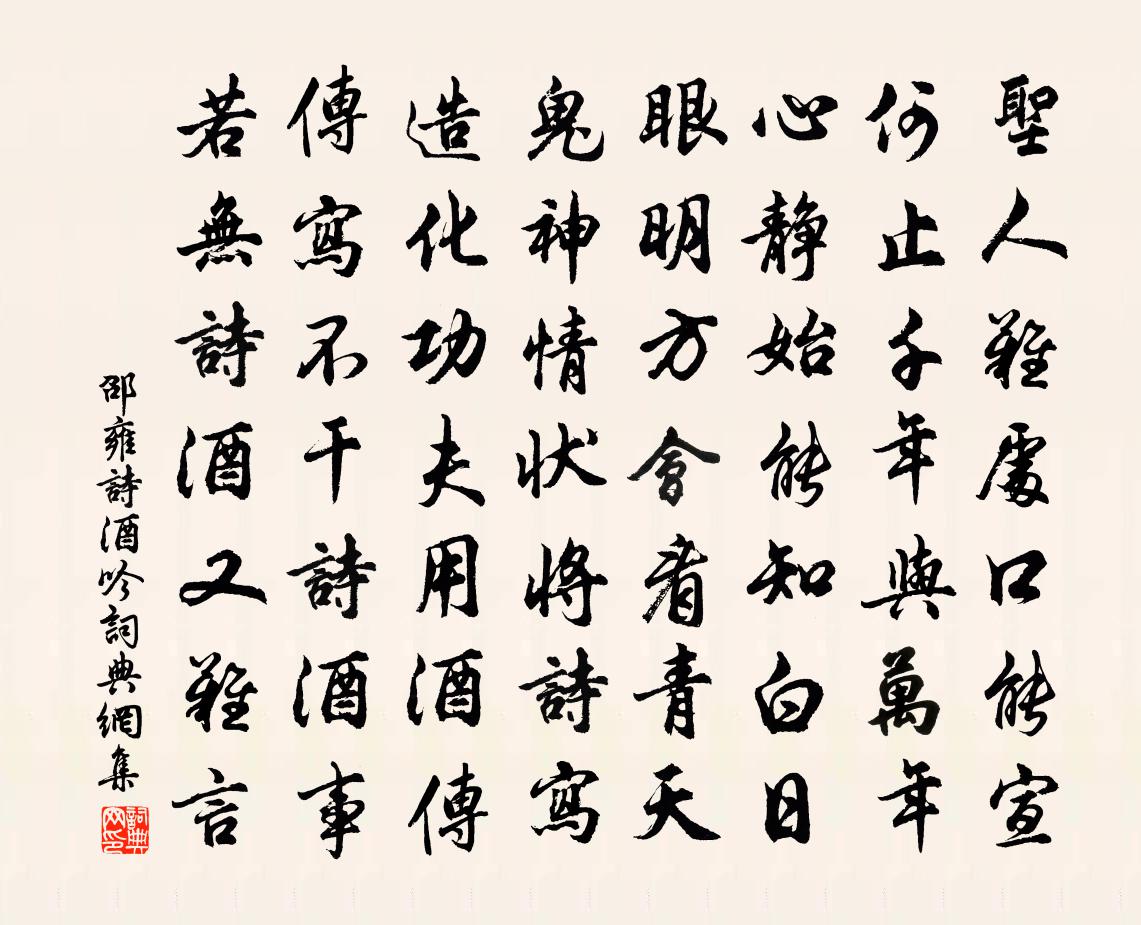 聖人難處口能宣
何止千年與萬年
心静始能知白日
眼明方會看青天
鬼神情狀將詩寫
造化功夫用酒傳
傳寫不干詩酒事
若無詩酒又難言
邵雍詩酒吟詞典網集
詞典网印